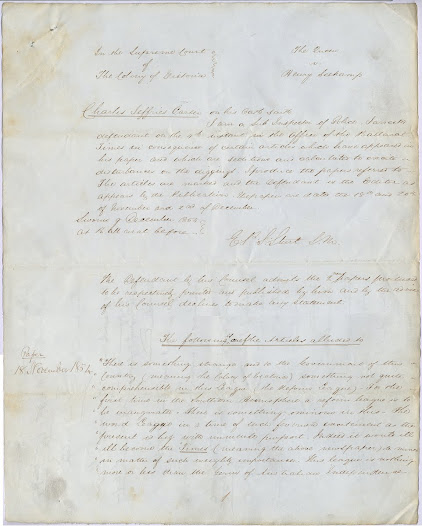 In the Supreme Court
of
The Colony of Victoria
The Queen
v
Henry Seekamp
Charles Jeffries Carter on his Oath saith
I am a Sub Inspector of Police. I arrested
defendant on the 4th instant in the Office of the Ballarat
Times in consequence of certain articles which have appeared in
his paper and which are seditious and calculated to create
disturbances on the diggings. I produce the papers referred to
The articles are marked and the Defendant is the Editor as
appears by the Publication. The papers are dated the 18th and
of November and 2nd of December
Sworn 9 December 1854
at Ballaarat before
The Defendant by his Counsel admits the Papers produced
to be respectively printed and published by him and by the advice
of his Counsel declines to make any Statement.
The following are the Articles alluded to
Paper
18 November 1854
"There is something strange, and to the Government of this
country (meaning the Colony of Victoria) something not quite
comprehensible in this League (the Reform League) For the
first time in the Southern Hemisphere a reform league is to
be inaugurated. There is something ominous in this. The
word League in a time of such feverish excitement as the
present is big with immense purport. Indeed it would
ill become the Times (meaning the above newspaper) to mince
in matter of such weighty importance. This league is nothing
more or less than the germ of Australian independence